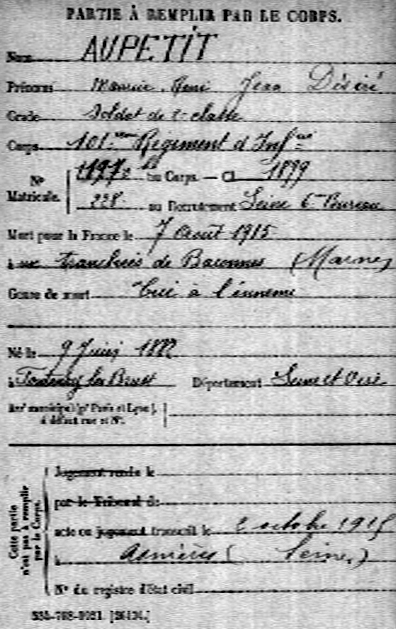 PARTIE À REMPLIR PAR LE CORPS.
Nom AUPETIT
Prénoms Maurice René Jean Désiré
Grade Soldat de 2e classe
Corps 101ème Régiment d'Infie
No Matricule. au Corps. — Cl 1899
228 au Recrutement Seine 6e Bureau
Mort pour la France le 7 Août 1915
à aux tranchées de Baconnes (Marne)
Genre de mort Tué à l'ennemi
Né le 9 Juin
à Fontenay les Briis Département Seine et Oise
Arrt municipal (pr Paris et Lyon),
à défaut rue et No.
Cette partie n'est pas à remplir par le Corps.
Jugement rendu le
par le Tribunal de
acte ou jugement transcrit le 2 octobre 1915
à Asnières (Seine)
No du registre d'état civil